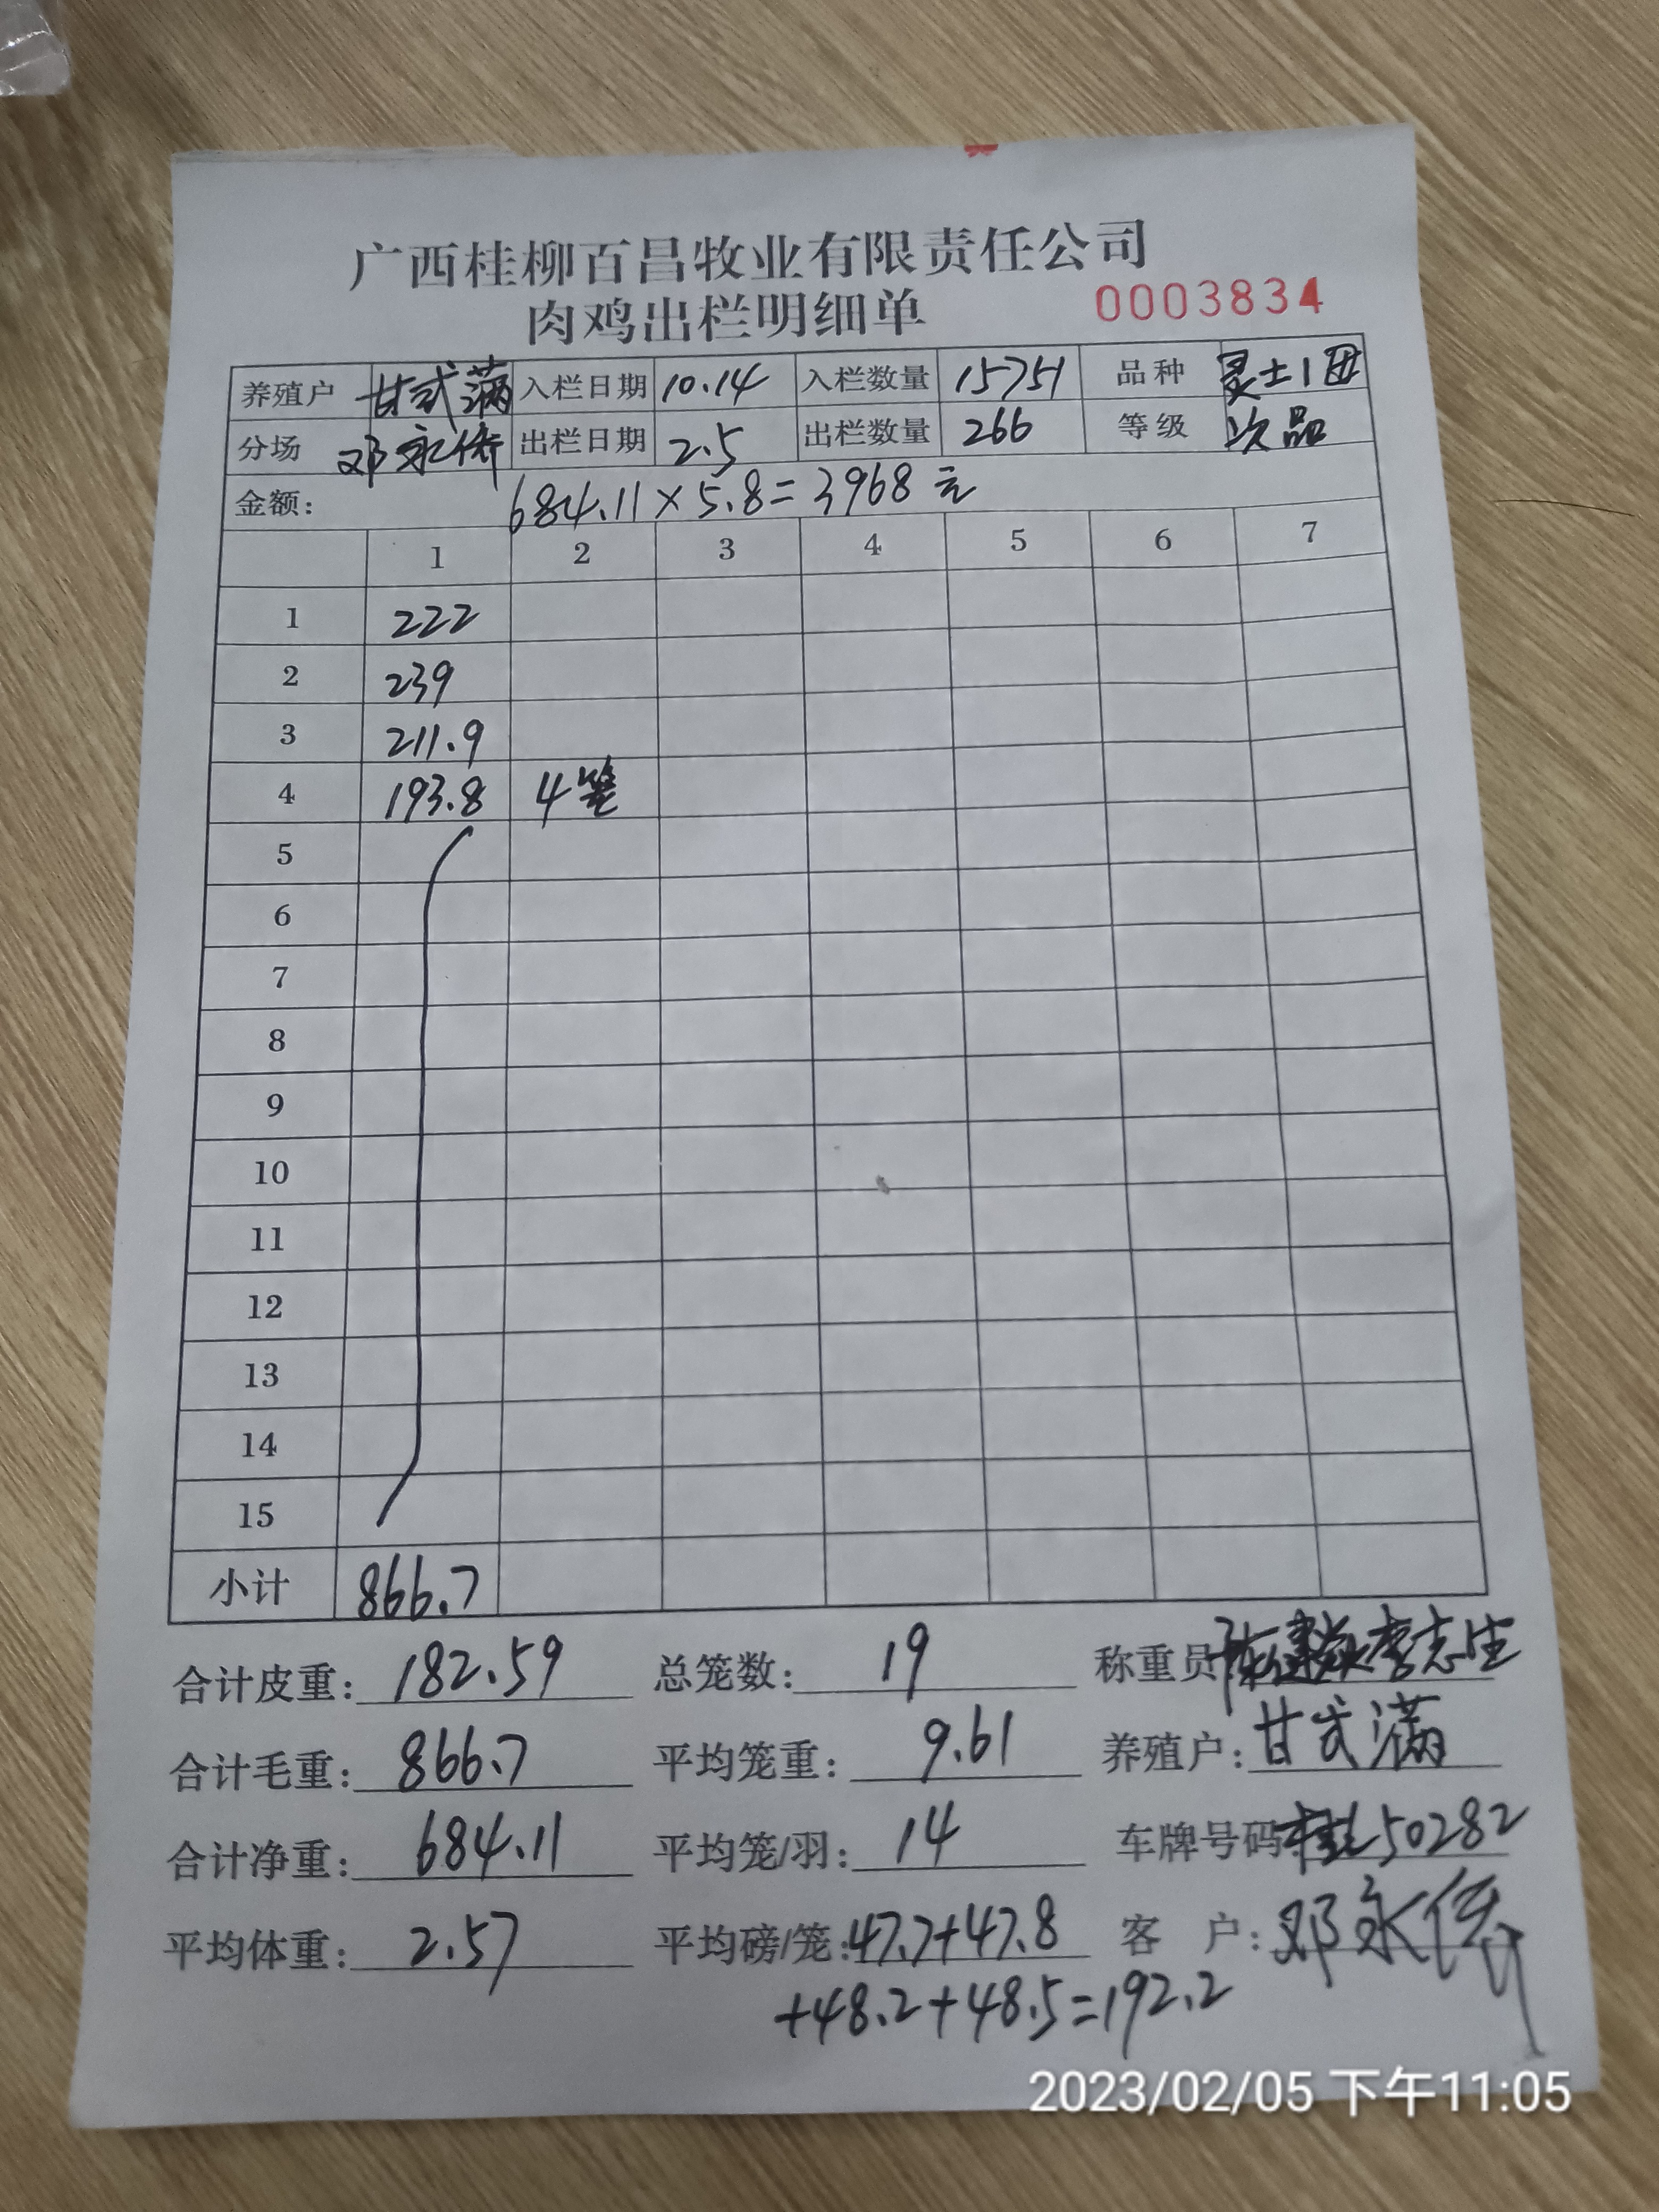 广西桂柳百昌牧业有限责任公司
肉鸡出栏明细单 0003834
养殖户 甘武满 入栏日期 10.14 入栏数量 15751 品种 灵士1
分场 邓永 出栏日期 2.5 出栏数量 266 等级 次品
金额: 684.11×5.8=3968元
1 2 3 4 5 6 7
1 222
2 239
3 211.9
4 193.8 4笼
5
6
7
8
9
10
11
12
13
14
15
小计 866.7
合计皮重: 182.59 总笼数: 19 称重员 李志生
合计毛重: 866.7 平均笼重: 9.61 养殖户: 甘武满
合计净重: 684.11 平均笼/羽: 14 车牌号码 50282
平均体重: 2.57 平均磅/笼: 47.7+47.8 客 户: 邓永
+48.2+48.5=192.2
2023/02/05 下午11:05